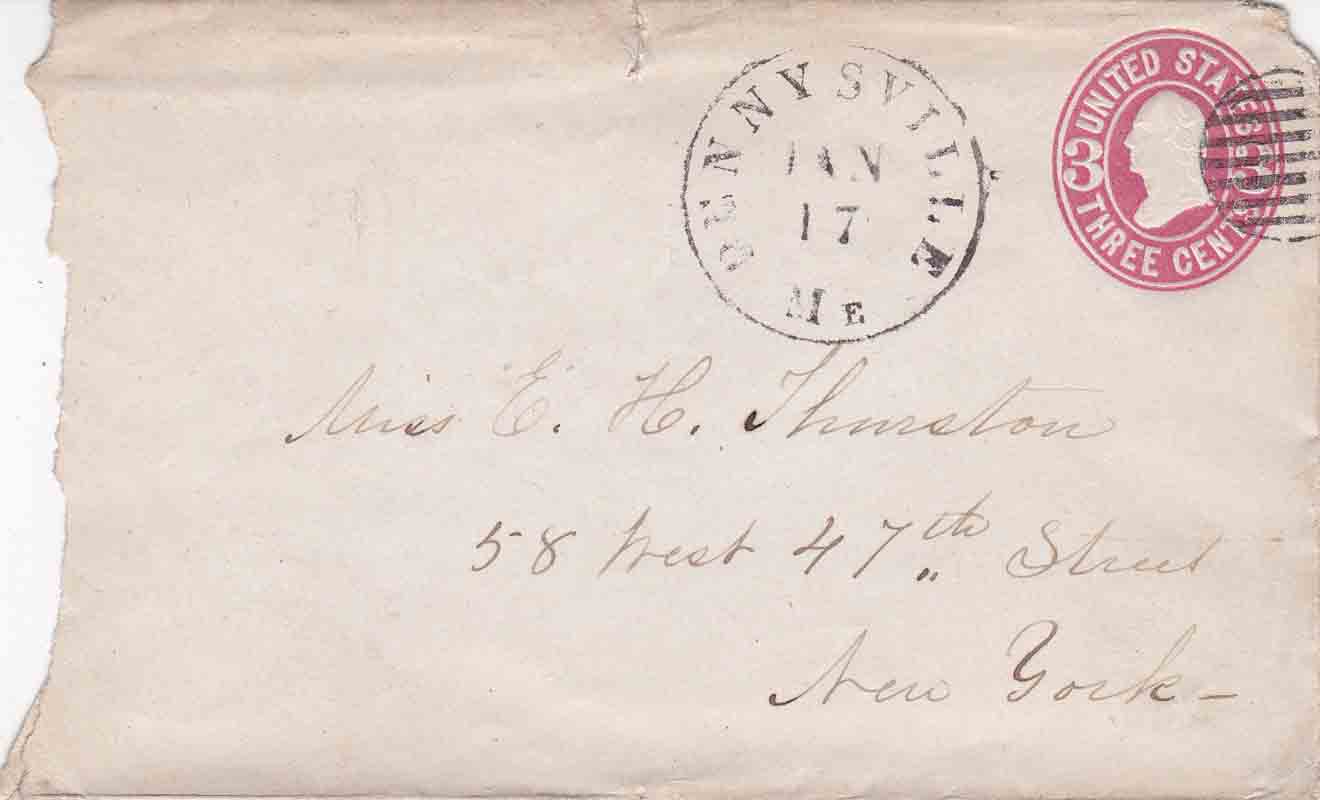 DENNYSVILLE
JAN
17
ME
UNITED STATES
3 3
THREE CENTS
Miss E. H. Thurston
58 West 47th Street
New York –